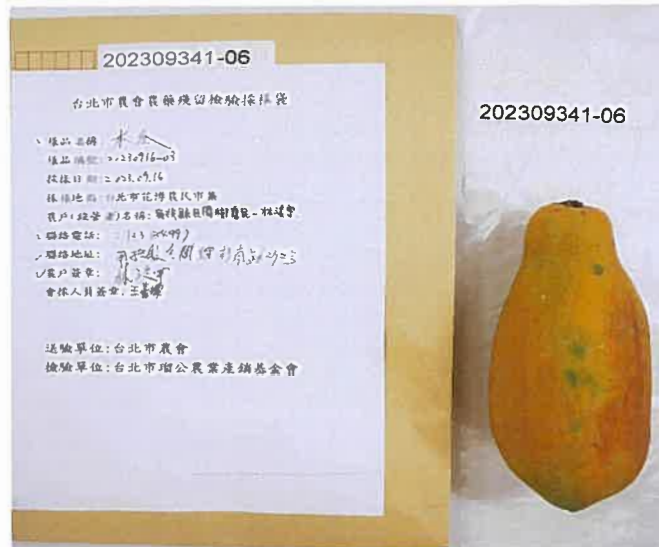 202309341-06
台北市農會農藥殘留檢驗採樣袋
樣品名稱 木瓜
樣品編號:20230916-03
採樣日期:2023.09.16
採樣地點:台北市花博農民市集
農戶(經營者)名稱:
聯絡電話:
聯絡地址:
農戶簽章:
會採人員簽章:王
送驗單位:台北市農會
檢驗單位:台北市瑠公農業產銷基金會
202309341-06